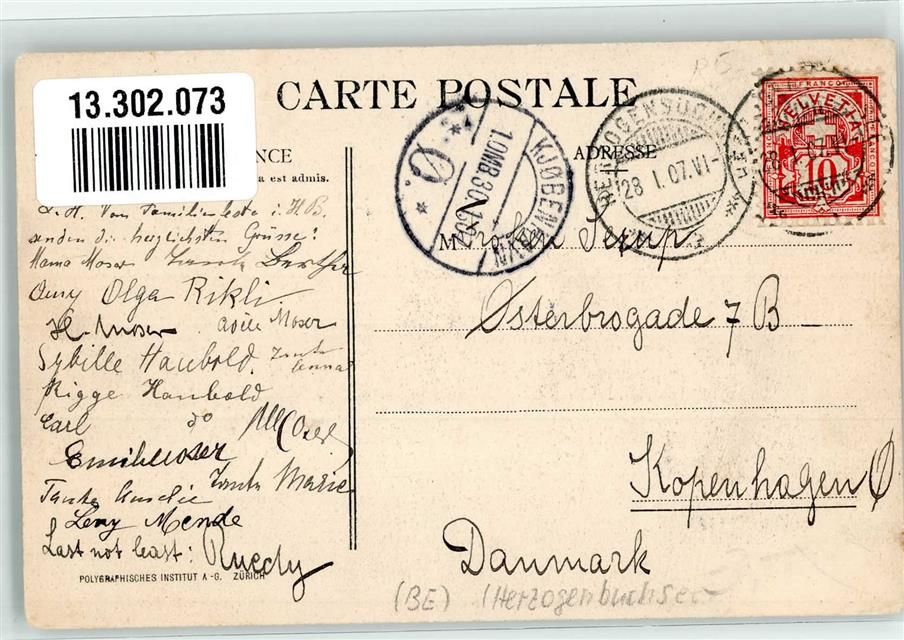 13.302.073
CARTE POSTALE
NCE
a est admis.
ADRESSE
KJØBENHAVN
Ø
10MB 30.1.07
HERZOGENBUCHSEE
28.I.07.VI
FRANCO
HELVETIA
10
Von Familienfeste i. H.B.
senden die herzlichsten Grüsse!
Mama Moser Tante Bertha
Olga Rikli
H. Moser Moser
Sybille Haubold. Tante Anna
Rigge Haubold
Carl do
Emil Moser
Tante Amelie Tante Marie
Leny Mende
Last not least: Ruedy
Østerbrogade 7 B
Kopenhagen Ø
Danmark
POLYGRAPHISCHES INSTITUT A.-G. ZÜRICH
(BE) (Herzogenbuchsee